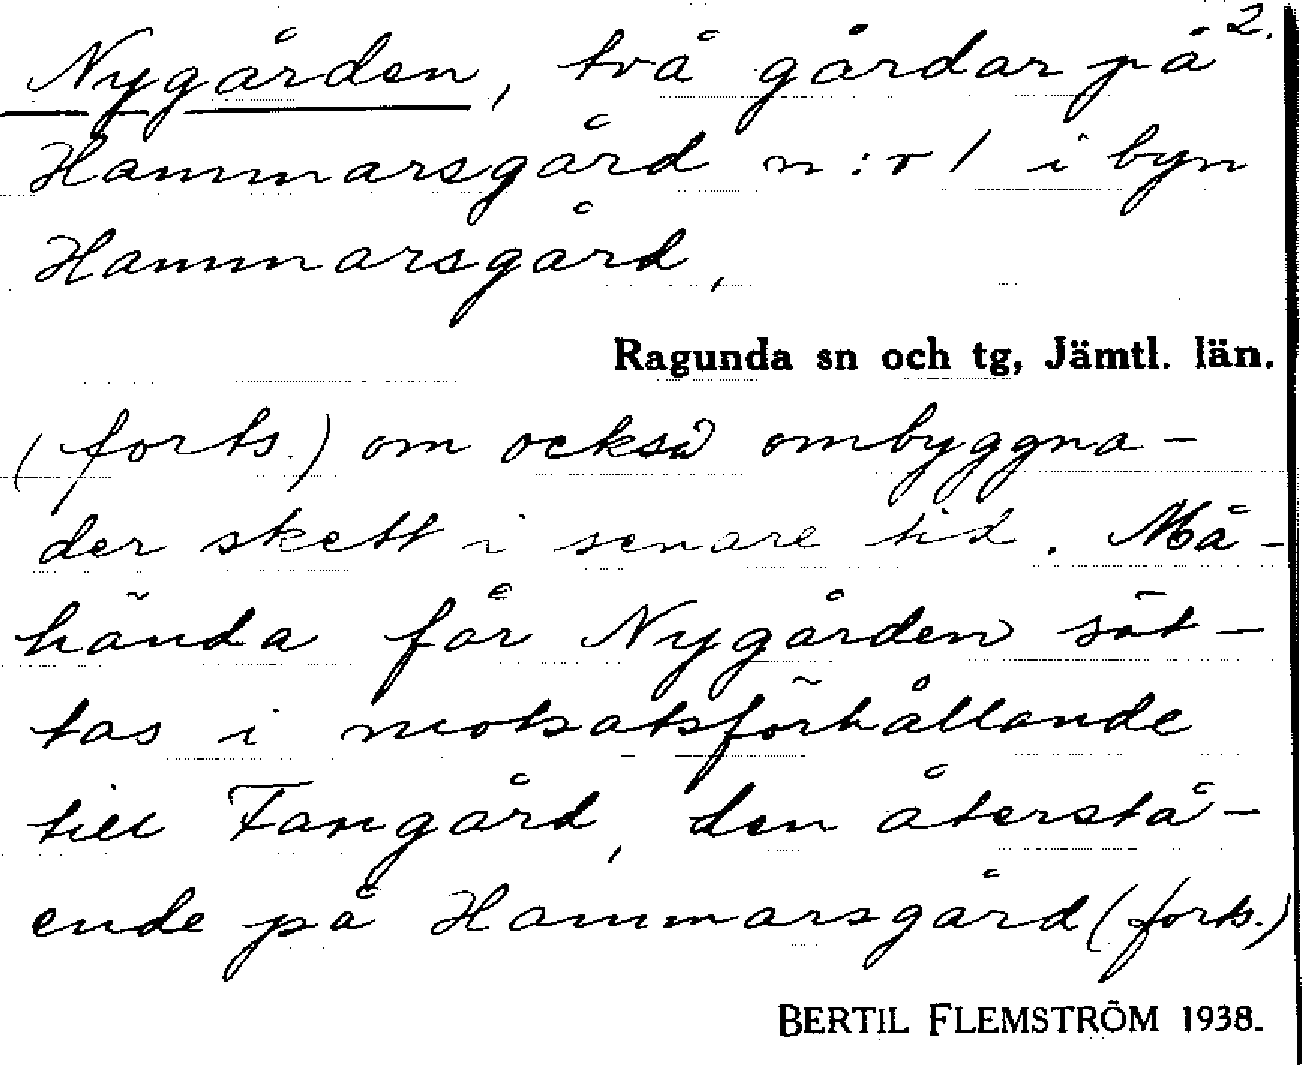 2.
Nygården, två gårdar på
Hammarsgård n:r 1 i byn
Hammarsgård,
Ragunda sn och tg, Jämtl. län.
(forts.) om också ombyggna-
der skett i senare tid. Må-
hända får Nygården sät-
tas i motsatsförhållande
till Fangård, den återstå-
ende på Hammarsgård (forts.)
BERTIL FLEMSTRÖM 1938.